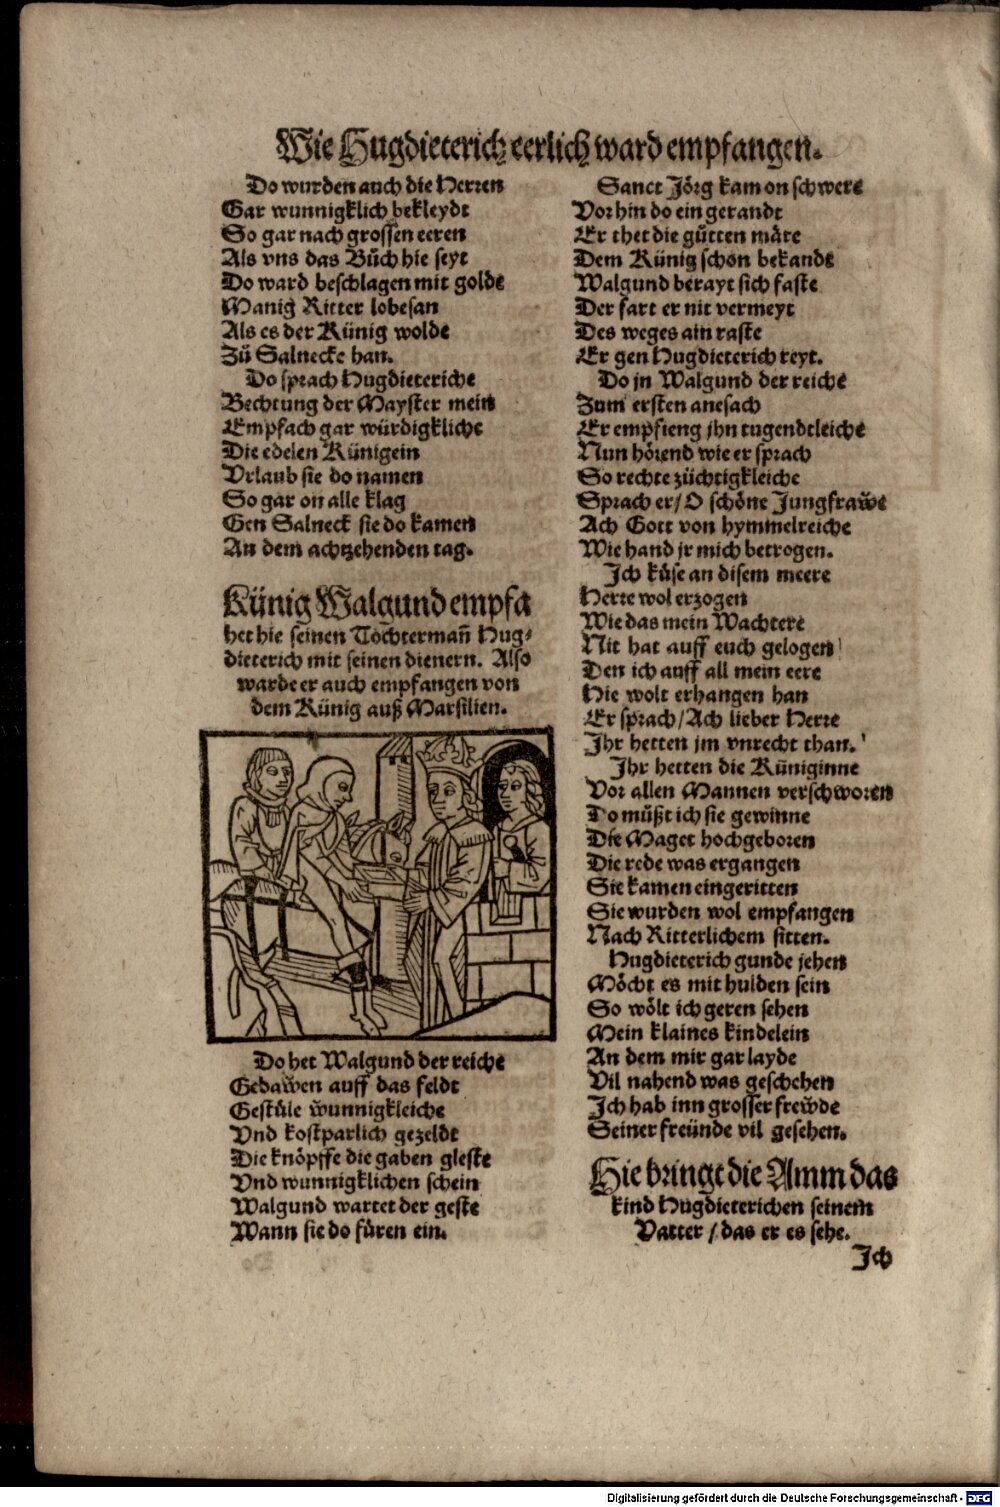 Wie Hugdieterich eerlich ward empfangen.
Do wurden auch die Herren
Gar wunnigklich bekleydt
So gar nach grossen eeren
Als vns das Bůch hie seyt
Do ward beschlagen mit golde
Manig Ritter lobesan
Als es der Künig wolde
Zů Salnecke han.
Do sprach Hugdieteriche
Bechtung der Mayster mein
Empfach gar würdigkliche
Die edelen Künigein
Vrlaub sie do namen
So gar on alle klag
Gen Salneck sie do kamen
An dem achtzehenden tag.
Künig Walgund empfa
het hie seinen Tochtermañ Hug⸗
dieterich mit seinen dienern. Also
warde er auch empfangen von
dem Künig auß Marsilien.
Do het Walgund der reiche
Gebaẅen auff das feldt
Gestüle wunnigkleiche
Vnd kostparlich gezeldt
Die knöpffe die gaben gleste
Vnd wunnigklichen schein
Walgund wartet der geste
Wann sie do füren ein.
Sanct Jörg kam on schwere
Vor hin do ein gerandt
Er thet die gůtten märe
Dem Künig schon bekande
Walgund berayt sich faste
Der fart er nit vermeyt
Des weges ain raste
Er gen Hugdieterich reyt.
Do jn Walgund der reiche
Zum ersten anesach
Er empfieng jhn tugendtleiche
Nun hörend wie er sprach
So rechte züchtigkleiche
Sprach er / O schöne Jungfraẅe
Ach Gott von hymmelreiche
Wie hand jr mich betrogen.
Ich küse an disem meere
Herre wol erzogen
Wie das mein Wachtere
Nit hat auff euch gelogen
Den ich auff all mein eere
Hie wolt erhangen han
Er sprach / Ach lieber Herre
Ihr hetten jm vnrecht than.
Ihr hetten die Küniginne
Vor allen Mannen verschworen
Do müßt ich sie gewinne
Die Maget hochgeboren
Die rede was ergangen
Sie kamen eingeritten
Sie wurden wol empfangen
Nach Ritterlichem sitten.
Hugdieterich gunde jehen
Möcht es mit hulden sein
So wölt ich geren sehen
Mein klaines kindelein
An dem mir gar layde
Vil nahend was geschehen
Ich hab inn grosser freẅde
Seiner freünde vil gesehen.
Hie bringt die Amm das
kind Hugdieterichen seinem
Vatter / das er es sehe.
Ich
Digitalisierung gefördert durch die Deutsche Forschungsgemeinschaft - DFG